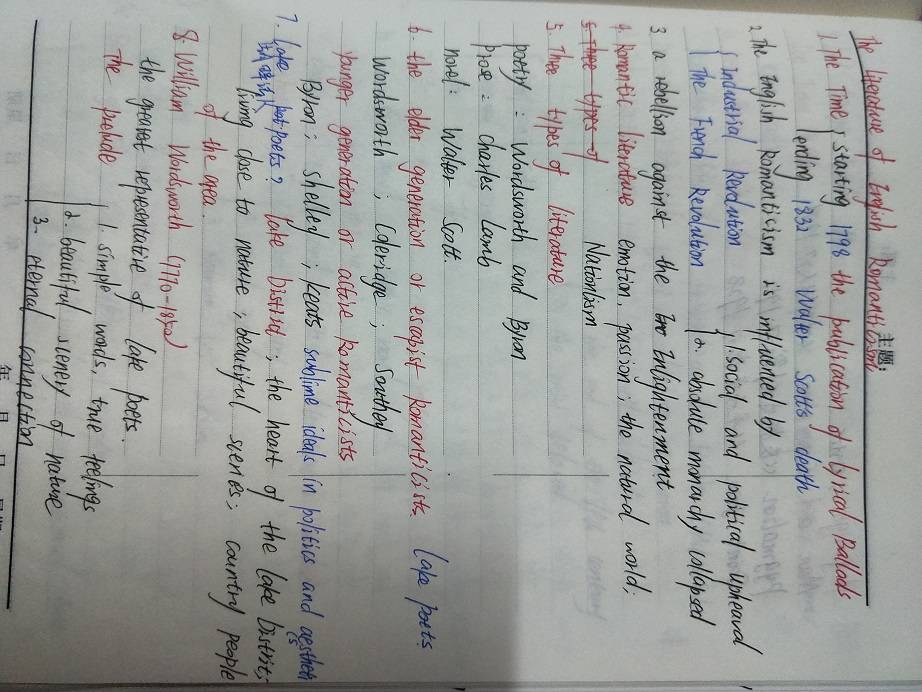 主题:
The literature of English Romanticism
1. The Time, starting 1798 the publication of lyrical Ballads
ending 1832 Walter Scott's death
2. The English Romanticism is influenced by
Industrial Revolution 1. Social and political upheaval
The French Revolution 2. absolute monarchy collapsed
3 a rebellion against the Enlightenment
4. Romantic literature emotion, passion; the natural world;
5. Three types of Nationlism
5. Three types of literature
poetry: Wordsworth and Byron
Prose: Charles Lamb
novel: Walter Scott.
6. the elder generation or escapist Romanticists. Lake poets.
Wordsworth; Coleridge; Southey
Younger generation or active Romanticists
Byron; Shelley; Keats sublime ideals in politics and aesthetics
7. Lake poets? Lake District; the heart of the Lake District;
living close to nature; beautiful scenes; country people
of the area.
8. William Wordsworth (1770-1850)
the greatest representative of Lake poets.
The prelude 1. simple words, true feelings
2. beautiful scenery of nature
3. eternal connection
年 月 日